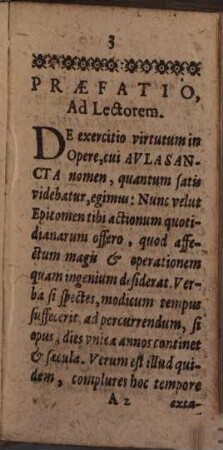 3
PRÆFATIO,
Ad Lectorem.
DE exercitio virtutum in
Opere, cui AVLA SAN-
CTA nomen, quantum satis
videbatur, egimus: Nunc velut
Epitomen tibi actionum quoti-
dianarum offero, quod affe-
ctum magis & operationem
quam ingenium desiderat. Ver-
ba si spectes, modicum tempus
suffecerit ad percurrendum, si
opus, dies vnica annos continet
& sæcula. Verum est illud qui-
dem, complures hoc tempore
A 2 exta-